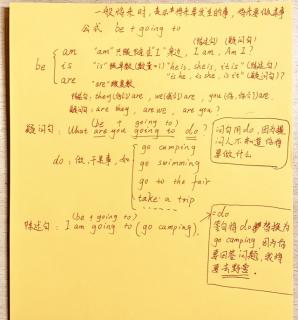 一般将来时，表示将来要发生的事，将来要做某事
公式 be + going to
(陈述句) (疑问句)
am "am"只跟随主"I"来边, I am, Am I?
be is "is"跟单数(数量=1) "he is, she is, it is" (陈述句)
"is he, is she, is it" (疑问句)?
are "are"跟复数
陈述句: they(他们) are, we(我们) are, you(你,你们) are.
疑问句: are they, are we, are you?
(be + going to)
疑问句: What are you going to do?
问句用do,因为提问人不知道你将要做什么
do: 做,干某事,如
go camping
go swimming
go to the fair
take a trip
......
(be + going to)
陈述句: I am going to (go camping).
=do
答句将do替换为
go camping,因为你
要回答问题,我将
要去野营.